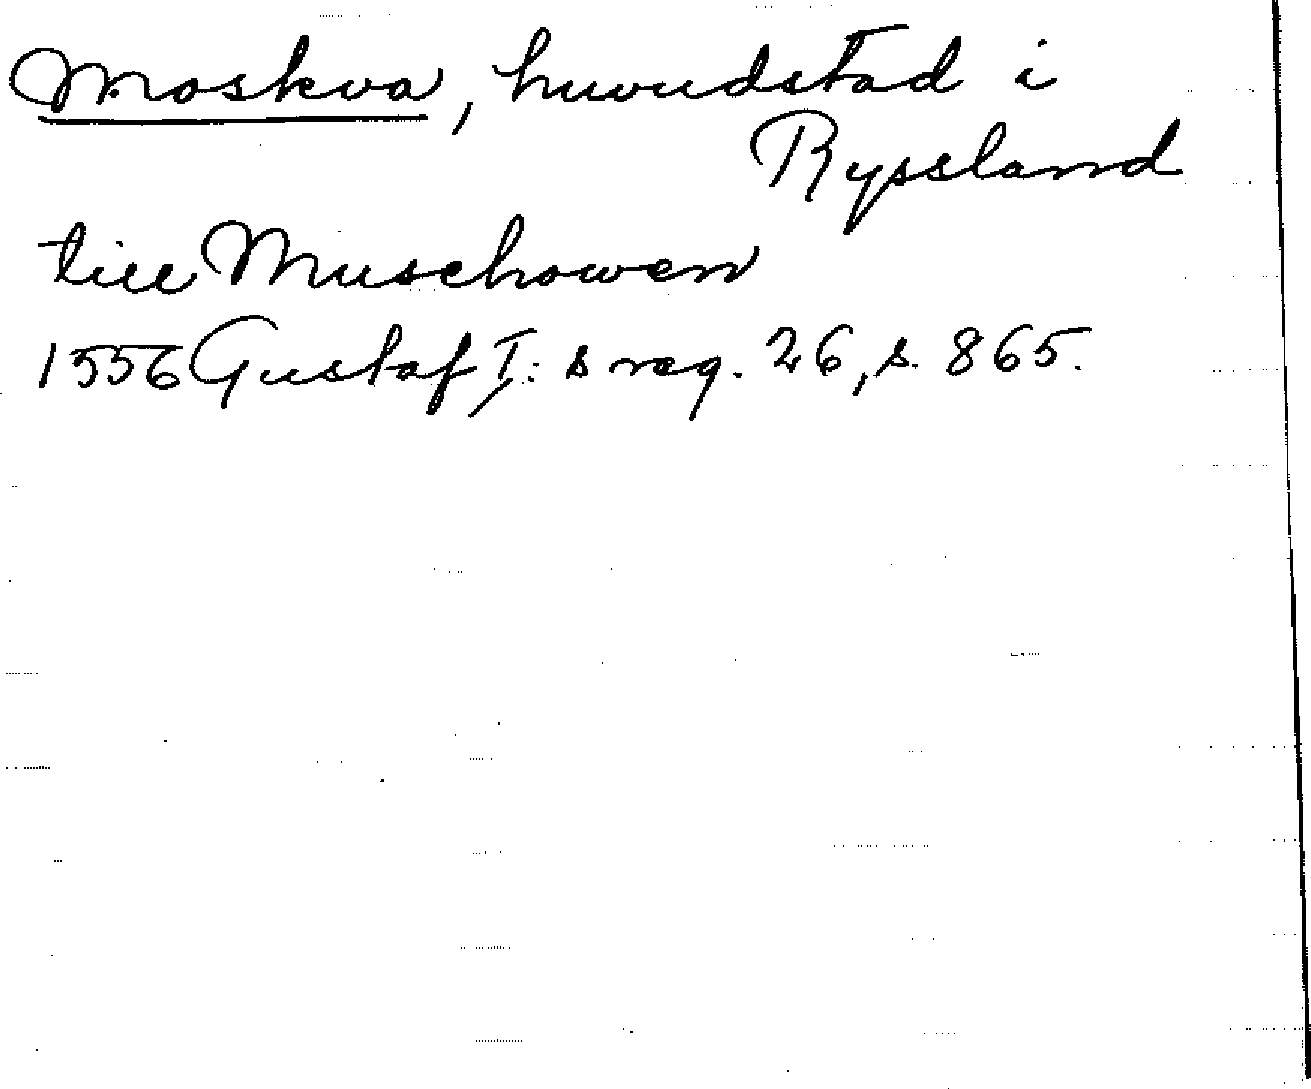 Moskva, huvudstad i
Ryssland
till Muschowen
1556 Gustaf I:s reg. 26, s. 865.